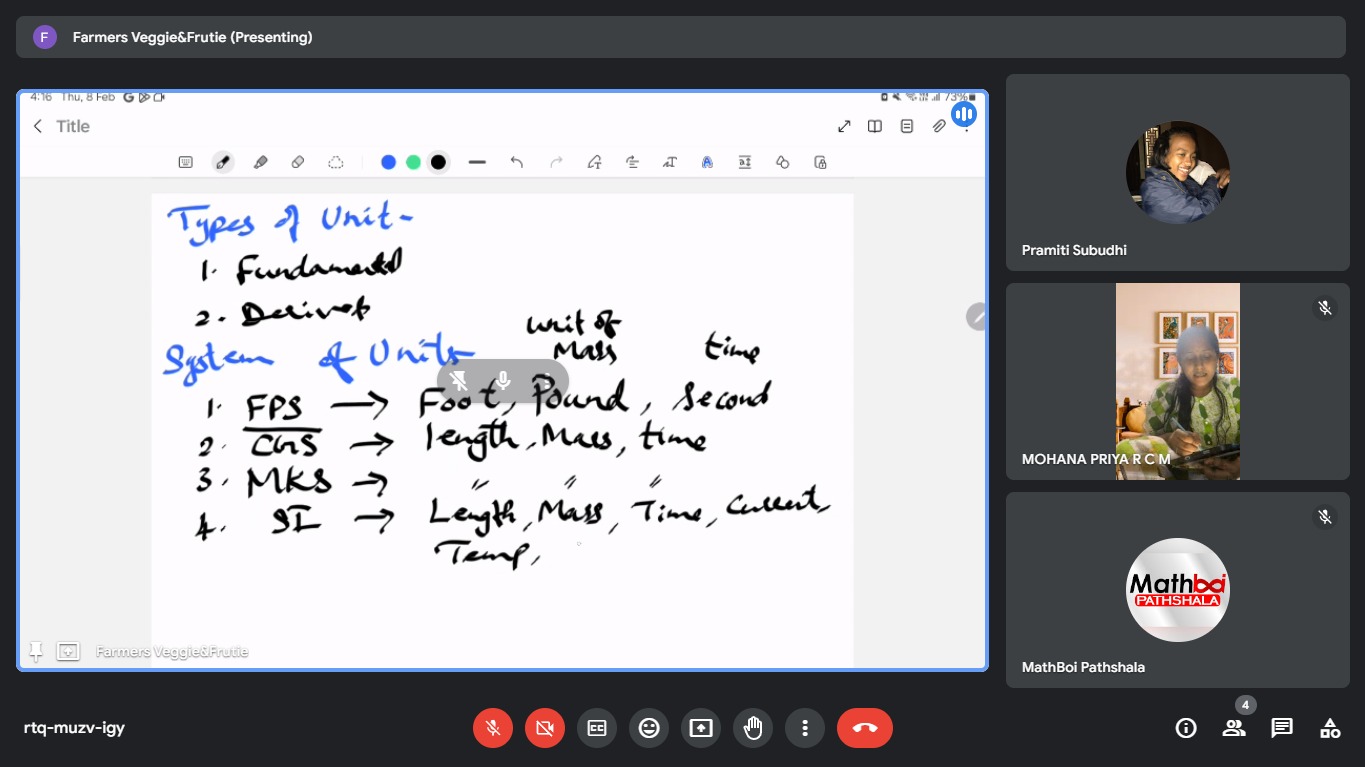 F Farmers Veggie&Frutie (Presenting)
4:16 Thu, 8 Feb
73%
Title
Types of Unit-
1. Fundamental
2. Derived
unit of
Mass time
System of Units
1. FPS → Foot, Pound, Second
2. CGS → length, Mass, time
3. MKS → " " "
4. SI → Length, Mass, Time, Current,
Temp,
Farmers Veggie&Frutie
Pramiti Subudhi
MOHANA PRIYA R C M
Mathboi
PATHSHALA
MathBoi Pathshala
rtq-muzv-igy
4